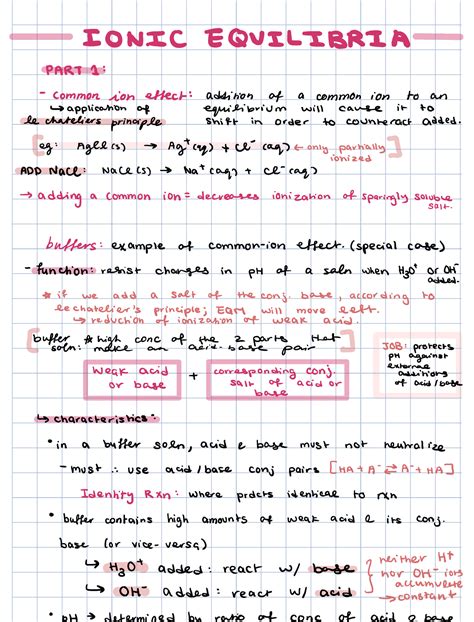 IONIC EQUILIBRIA
PART 1:
- common ion effect: addition of a common ion to an
↳ application of equilibrium will cause it to
le chateliers principle shift in order to counteract added.
[eg: AgCl(s) → Ag⁺(aq) + Cl⁻(aq) ← only partially
ionized
ADD NaCl: NaCl(s) → Na⁺(aq) + Cl⁻(aq)
→ adding a common ion = decreases ionization of sparingly soluble
salt.
buffers: example of common-ion effect. (special case)
- function: resist changes in pH of a soln when H₃O⁺ or OH⁻
added.
* if we add a salt of the conj. base, according to
lechatelier's principle; EQM will move left.
↳ reduction of ionization of weak acid.
[buffer * high conc of the 2 parts that
soln: make an acid-base pair]
weak acid
or base
+
corresponding conj.
salt of acid or
base
JOB: protects
pH against
external
additions
of acid/base
↳ characteristics:
• in a buffer soln, acid & base must not neutralize
- must ∴ use acid/base conj pairs [HA + A⁻ ⇌ A⁻ + HA]
Identity Rxn: where prdcts identical to rxn
• buffer contains high amounts of weak acid & its conj.
base (or vice-versa)
↳ H₃O⁺ added: react w/ base
↳ OH⁻ added: react w/ acid
neither H⁺
nor OH⁻ ions
accumulate
→ constant
• pH → determined by ratio of conc of acid & base